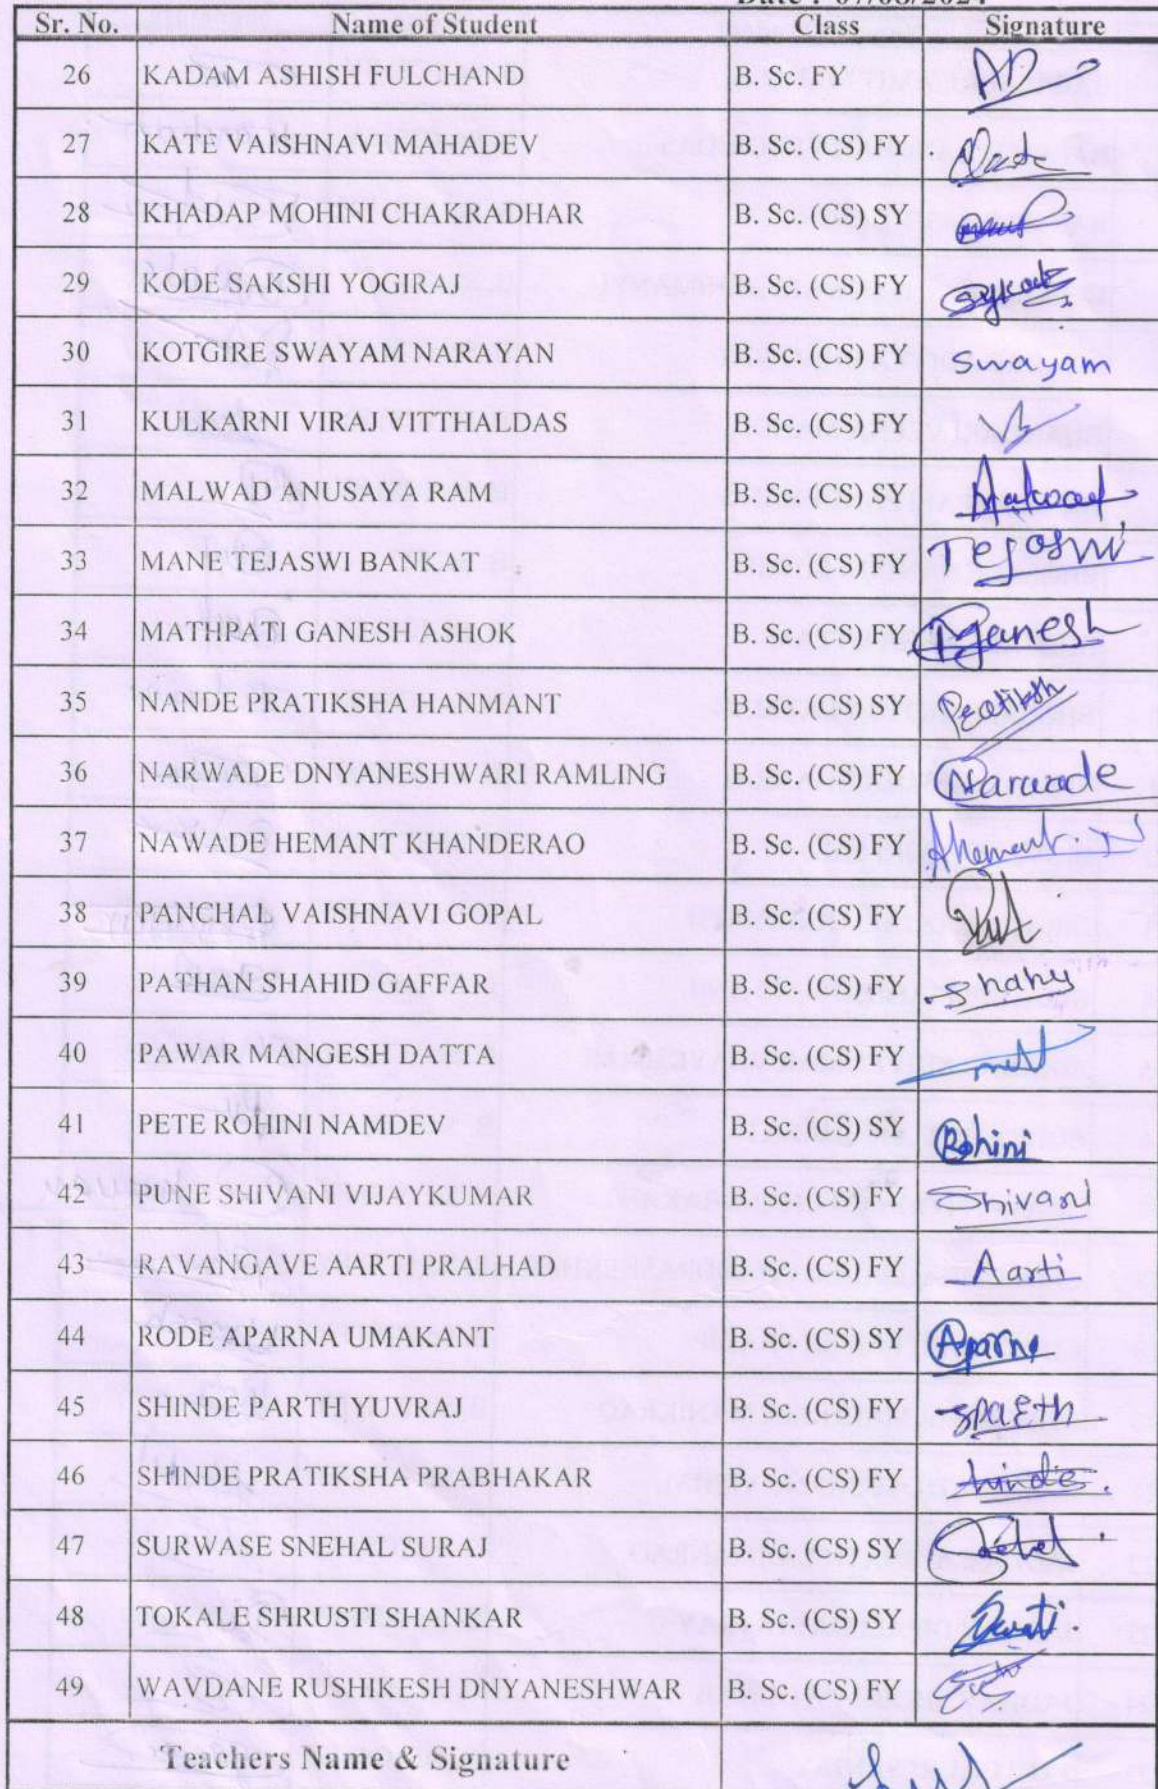 Date : 07/08/2024
Sr. No. Name of Student Class Signature
26 KADAM ASHISH FULCHAND B. Sc. FY
27 KATE VAISHNAVI MAHADEV B. Sc. (CS) FY
28 KHADAP MOHINI CHAKRADHAR B. Sc. (CS) SY
29 KODE SAKSHI YOGIRAJ B. Sc. (CS) FY
30 KOTGIRE SWAYAM NARAYAN B. Sc. (CS) FY Swayam
31 KULKARNI VIRAJ VITTHALDAS B. Sc. (CS) FY
32 MALWAD ANUSAYA RAM B. Sc. (CS) SY
33 MANE TEJASWI BANKAT B. Sc. (CS) FY Tejaswi
34 MATHPATI GANESH ASHOK B. Sc. (CS) FY Ganesh
35 NANDE PRATIKSHA HANMANT B. Sc. (CS) SY
36 NARWADE DNYANESHWARI RAMLING B. Sc. (CS) FY Narwade
37 NAWADE HEMANT KHANDERAO B. Sc. (CS) FY
38 PANCHAL VAISHNAVI GOPAL B. Sc. (CS) FY
39 PATHAN SHAHID GAFFAR B. Sc. (CS) FY
40 PAWAR MANGESH DATTA B. Sc. (CS) FY
41 PETE ROHINI NAMDEV B. Sc. (CS) SY Rohini
42 PUNE SHIVANI VIJAYKUMAR B. Sc. (CS) FY Shivani
43 RAVANGAVE AARTI PRALHAD B. Sc. (CS) FY Aarti
44 RODE APARNA UMAKANT B. Sc. (CS) SY Aparna
45 SHINDE PARTH YUVRAJ B. Sc. (CS) FY
46 SHINDE PRATIKSHA PRABHAKAR B. Sc. (CS) FY
47 SURWASE SNEHAL SURAJ B. Sc. (CS) SY
48 TOKALE SHRUSTI SHANKAR B. Sc. (CS) SY
49 WAVDANE RUSHIKESH DNYANESHWAR B. Sc. (CS) FY
Teachers Name & Signature